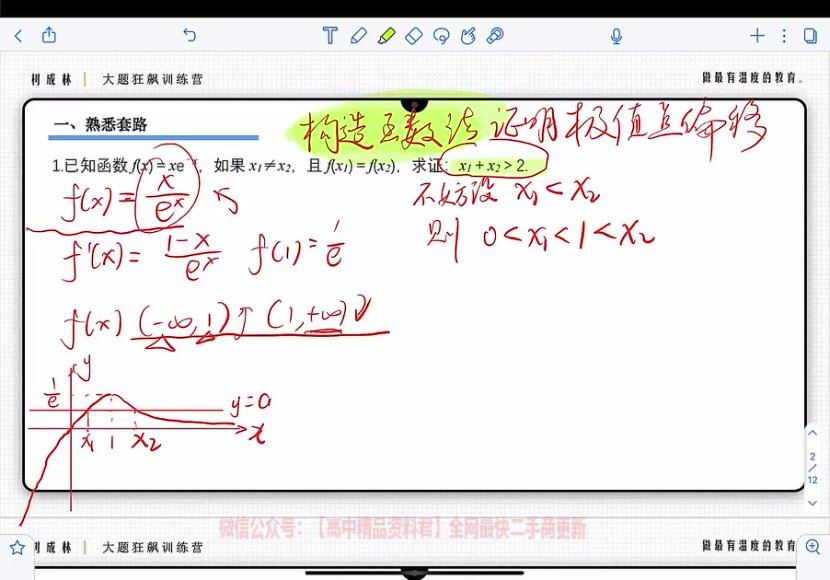 树成林 | 大题狂飙训练营
做最有温度的教育。
一、熟悉套路
构造函数法 证明极值点偏移
1.已知函数 f(x)=xe⁻ˣ，如果 x₁≠x₂，且 f(x₁)=f(x₂)，求证：x₁+x₂>2.
f(x)=x/eˣ
不妨设 x₁<x₂
则 0<x₁<1<x₂
f'(x)=(1-x)/eˣ f(1)=1/e
f(x) (-∞,1)↑ (1,+∞)↓
y
1/e
y=a
x₁ 1 x₂ x
2/12
微信公众号：【高中精品资料君】全网最快二手商更新
树成林 | 大题狂飙训练营
做最有温度的教育。